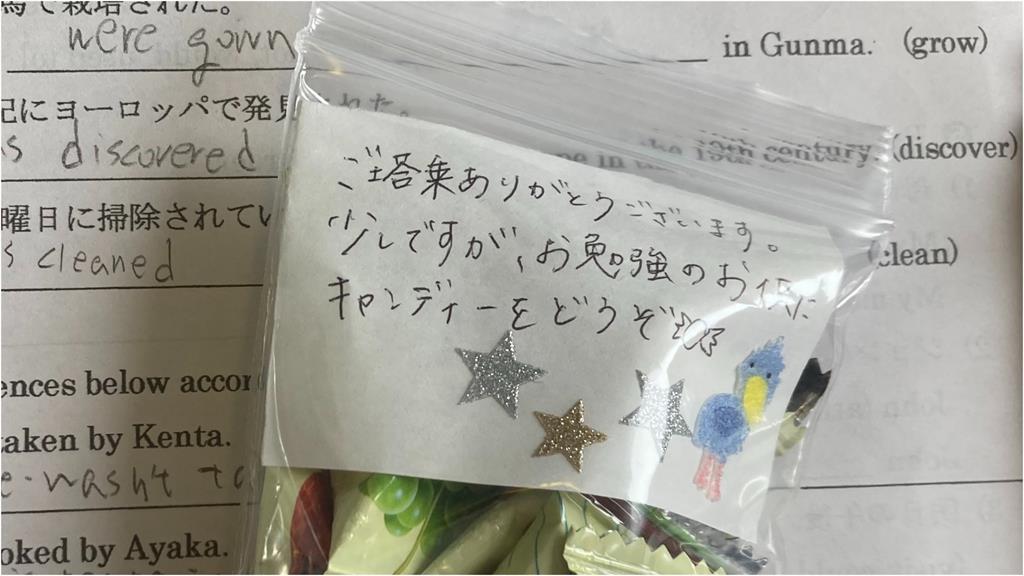 で栽培された。
were gown in Gunma. (grow)
にヨーロッパで発見 れた。
s discovered the 19th century. (discover)
ご塔乗ありがとうございます。
曜日に掃除されてい
s cleaned (clean)
少しですが、お勉強のお供に
キャンディーをどうぞ
ences below accor
taken by Kenta.
oked by Ayaka.